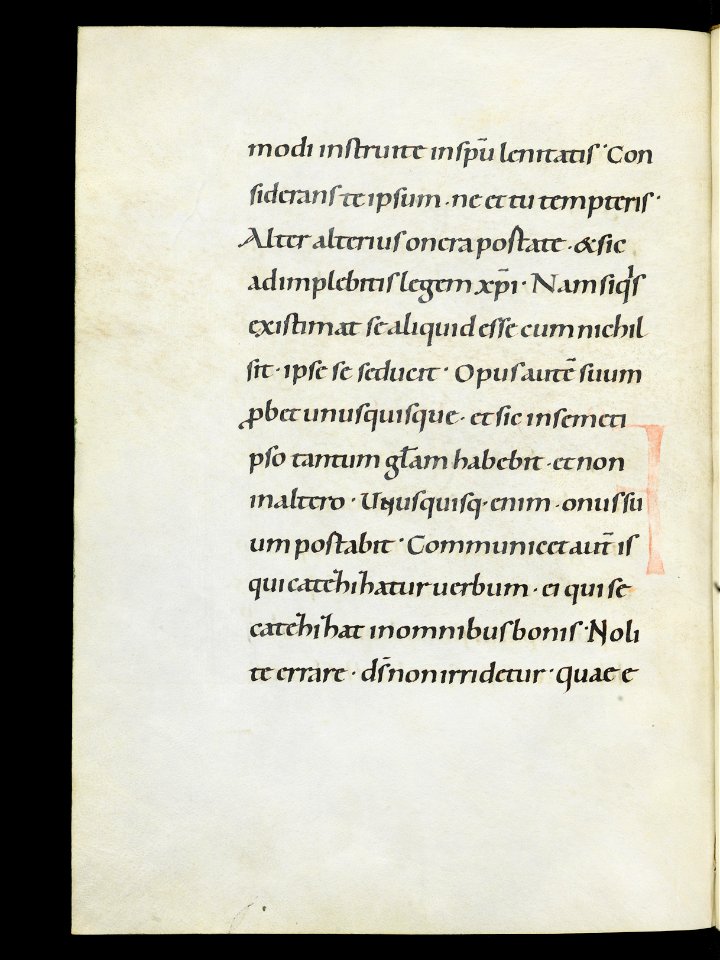 modi instruite in sp̄u lenitatis · Con
siderans te ipsum · ne et tu tempteris ·
Alter alterius onera postate · & sic
adimplebitis legem xp̄i · Nam siqͥs
existimat se aliquid esse cum nichil
sit · ipse se seducit · Opus autē suum
ꝓbet unusquisque · et sic insemeti
pso tantum gl̄am habebit · et non
in altero · Unusquisq· enim · onus su
um postabit · Communicet aut̄ is
qui catehihatur uerbum · ei qui se
catehihat in omnibus bonis · Noli
te errare · d̄s non irridetur · quae e